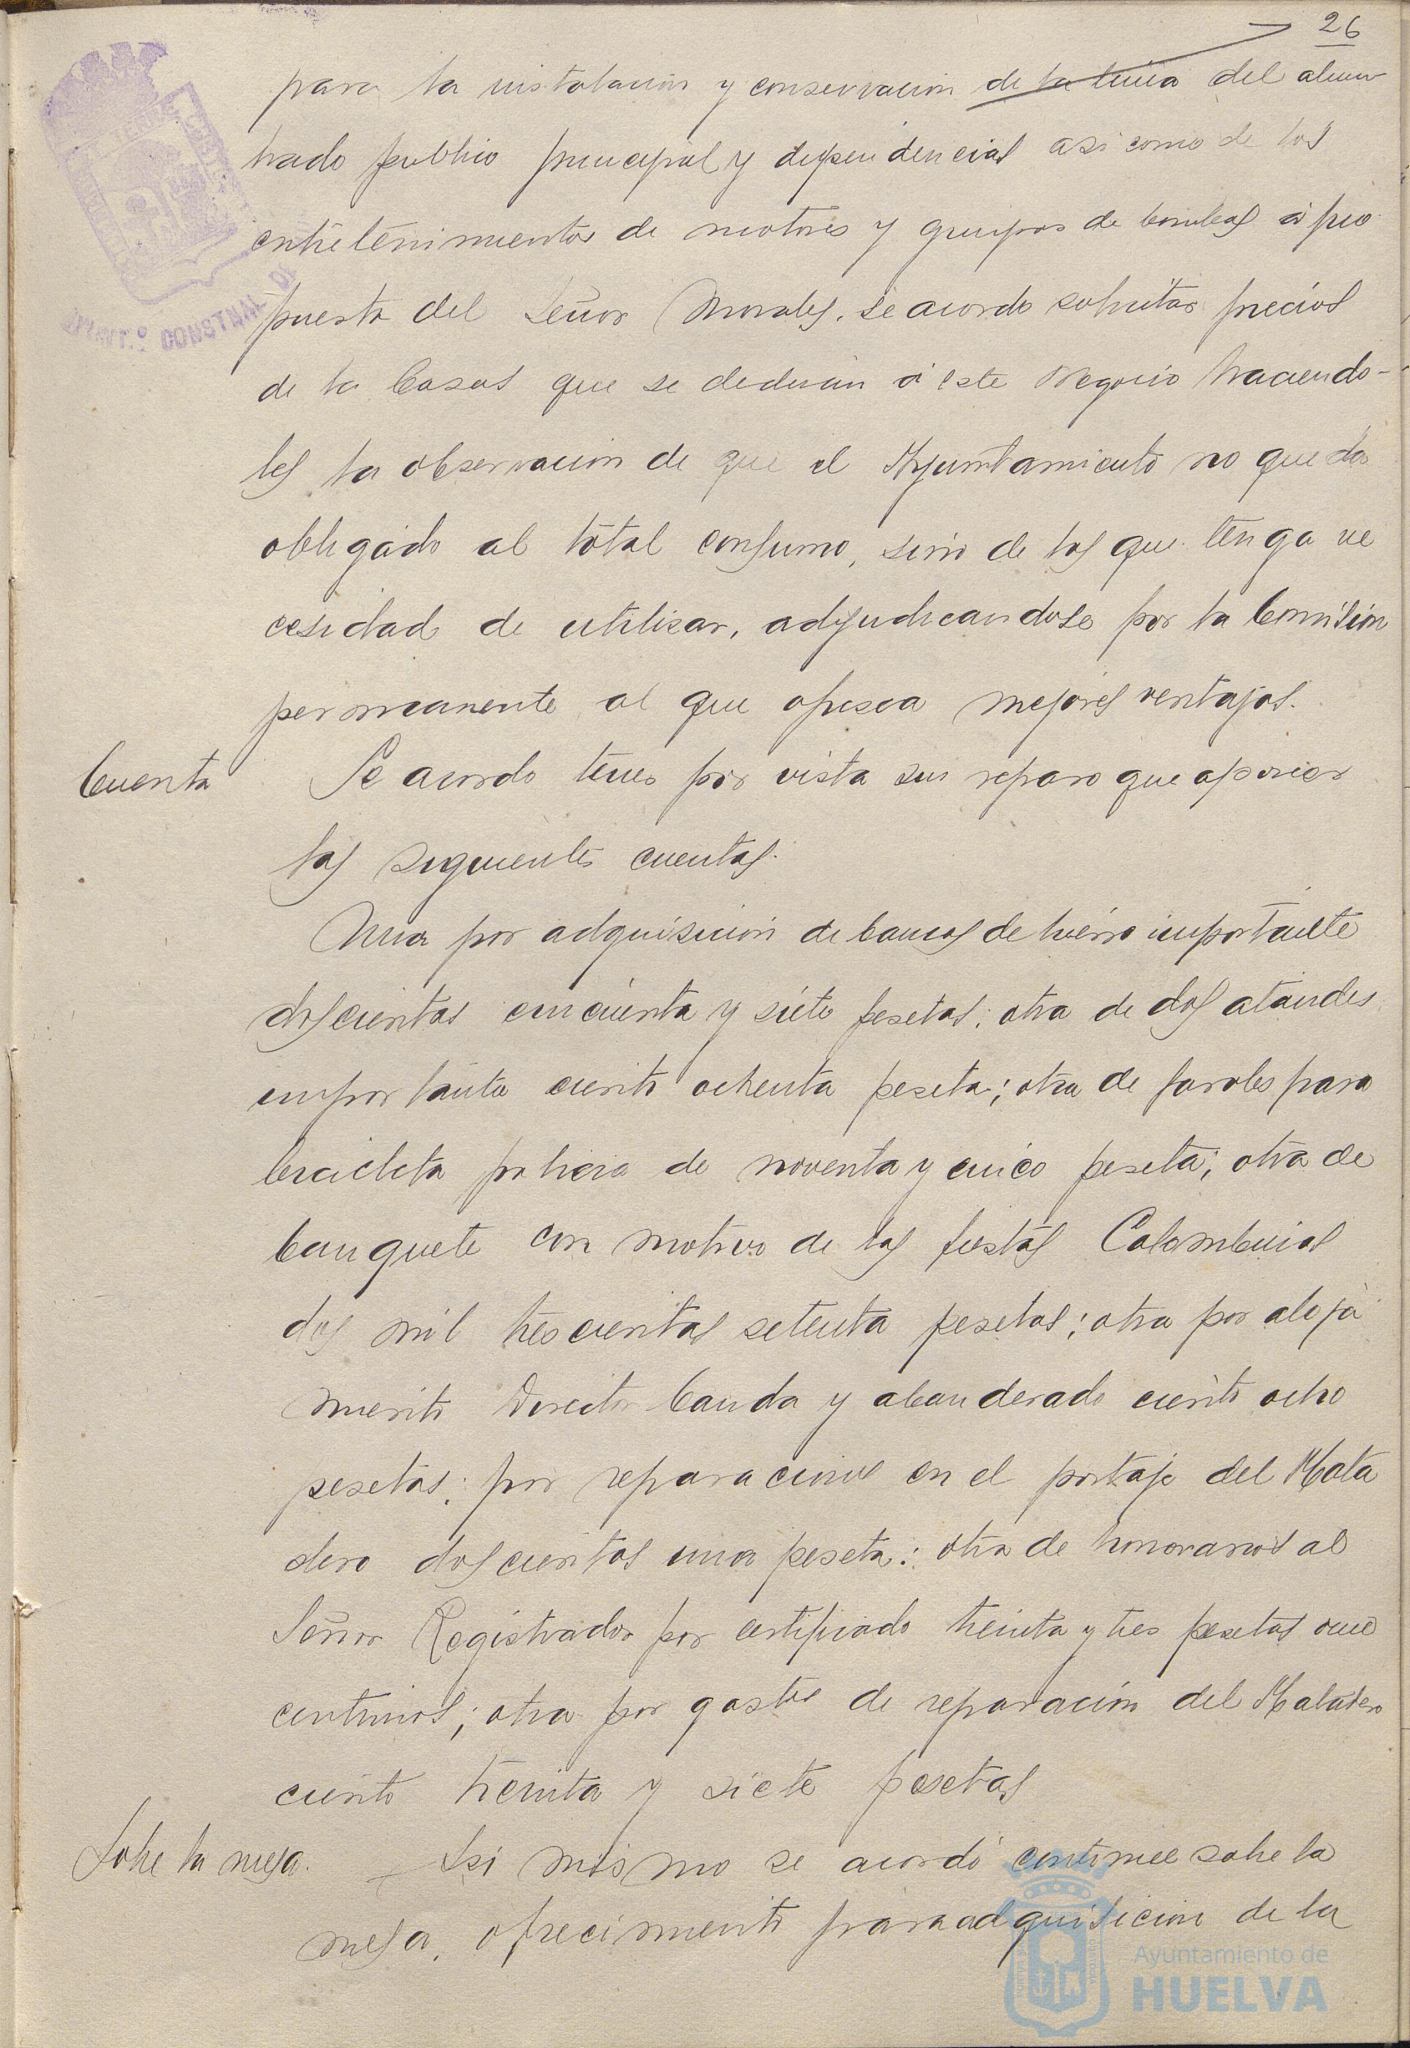 26
para la instalación y conservación de la linea del alum
brado publico principal y dependencias asi como de los
entretenimientos de motores y grupos de bombas á pro
puesta del Señor Morales, se acordo solicitar precios
de la Casas que se dedican á este Negocio haciendo-
les la observacion de que el Ayuntamiento no queda
obligado al total consumo, sino de las que tenga ne
cesidad de utilizar, adjudicandose por la Comision
permanente al que ofresca mejores ventajas.
Cuenta Se acordo tener por vista sin reparo que oponer
las siguientes cuentas.
Una por adquisición de bancos de hierro importante
doscientas cincuenta y siete pesetas; otra de dos ataudes
importante ciento ochenta peseta; otra de faroles para
bicicleta policia de noventa y cinco peseta; otra de
banquete con motivo de las fiestas Colombinas
dos mil trescientas setenta pesetas; otra por aloja
miento Director banda y abanderado ciento ocho
pesetas; por reparacione en el portaje del Mata
dero doscientas una peseta; otra de honorarios al
Señor Registrador por certificado treinta y tres pesetas once
centimos; otra por gastos de reparación del Matadero
ciento treinta y siete pesetas
Sobre la mesa. Asi mismo se acordó continue sobre la
mesa, ofrecimiento para adquisicion de la
AYUNT.º CONSTNAL DE
Ayuntamiento de
HUELVA